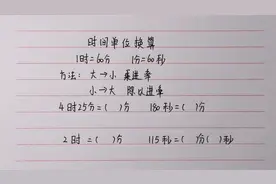 时间单位换算
1时=60分 1分=60秒
方法：大→小 乘进率
小→大 除以进率
4时25分=( )分 180秒=( )分
2时=( )分 115秒=( )分( )秒